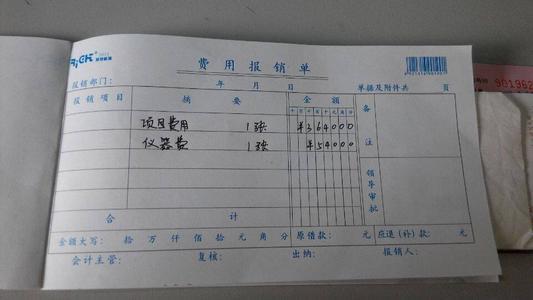 RICH
费用报销单
报销部门： 年 月 日 单据及附件共 页
报销项目 摘要 金额 备注
十万千百十元角分
项目费用 1张 ¥364000
仪器费 1张 ¥54000
领导审批
合计
金额大写： 拾 万 仟 佰 拾 元 角 分 原借款： 元 应退（补）款： 元
会计主管： 复核： 出纳： 报销人：
901962